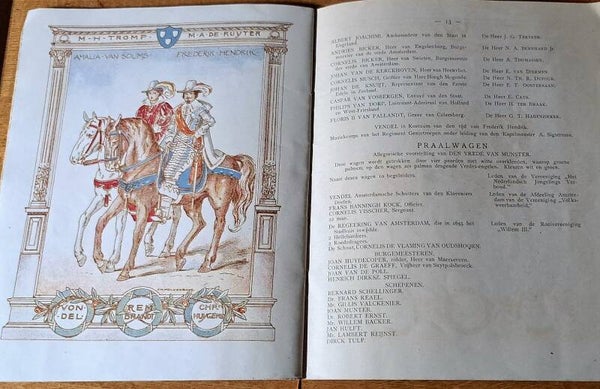 M·H·TROMP· M·A·DE·RUYTER
AMALIA·VAN·SOLMS· FREDERIK·HENDRIK
VON-DEL· REM BRANDT CHR· HUYGENS
— 13 —
ALBERT JOACHIMI, Ambassadeur van den Staat in Engeland De Heer J. G.
ANDRIES BICKER, Heer van Engelenburg, Burgemeester van de stede Amsterdam De Heer N. A. BERNHARD Jr.
CORNELIS BICKER, Heer van Swieten, Burgemeester van Amsterdam De Heer A.
JOHAN VAN DE KERCKHOVEN, Heer van Heenvliet. De Heer E. VAN DIERMEN.
CORNELIS MUSCH, Griffier van Hare Hoogh Mogende De Heer N. TH. R. DUPUCK.
JOHAN DE KNUIJT, Representant van den Eerste Edele in Zeeland. De Heer E. T. OOSTERBAAN.
CASPAR VAN VOSBERGEN, Gerecd van den Staat. De Heer E. CATS.
PHILIPS VAN DORP, Luitenant Admiraal van Holland en West-Friesland De Heer B. TER BRAAK.
FLORIS B VAN PALLANDT, Grave van Culemburg. De Heer G. T. HABENICHT.
VENDEL in Kostuum van den tijd van Frederik Hendrik.
Muziekkorps van het Regiment Genietroepen onder leiding van den Kapelmeester A.
PRAALWAGEN
Allegorische voorstelling van DEN VREDE VAN MUNSTER.
Deze wagen wordt getrokken door vier paarden met witte overkleeden, waarop groene palmen; op den wagen als palmen dragende Vredes-engelen. Kransen wit en groen.
Naast dezen wagen te begeleiden. Leden van de Vereeniging „Het Nederlandsch Jongelings Verbond."
VENDEL Amsterdamsche Schutters van den Klaveniers Doelen.
Leden van de Afdeeling Amsterdam van de Vereeniging „Volksweerbaarheid."
FRANS BANNINGH KOCK, Officier.
CORNELIS VISSCHER, Sergeant.
22 man.
De REGEERING VAN AMSTERDAM, die in 1655 het Stadhuis inwijdde Leden van de Roeivereeniging „Willem III."
2 Hellebardiers.
2 Roedragers.
De Schout, CORNELIS DE VLAMING VAN OUDSHOORN.
BURGEMEESTEREN.
JOAN HUYDECOPER, ridder, Heer van Maerseveen.
CORNELIS DE GRAEFF, Vrijheer van Suytpolsbroeck.
JOAN VAN DE POLL.
HENRICH DIRKSZ. SPIEGEL.
SCHEPENEN.
BERNARD SCHELLINGER.
Dr. FRANS REAEL.
Mr. GILLIS VALCKENIER.
JOAN MUNTER.
Dr. ROBERT ERNST.
Mr. WILLEM BACKER.
JAN HULFT.
Mr. LAMBERT REIJNST.
DIRCK TULP.